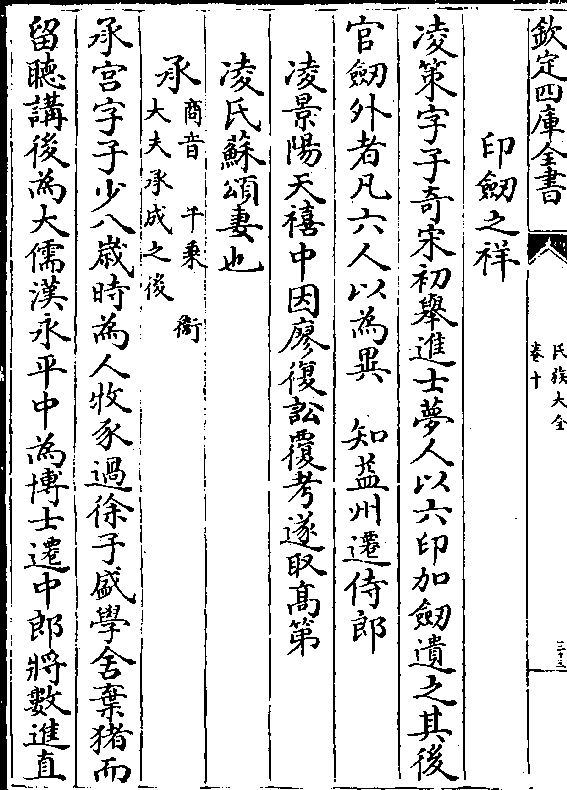 欽定四庫全書
氏族大全
卷十
印劒之祥
凌策字子奇宋初舉進士夢人以六印加劒遺之其後
官劒外者凡六人以為異　知益州遷侍郎
凌景陽天禧中因廖復訟覆考遂取髙第
凌氏蘇頌妻也
承
商音　千乘　衛
大夫承成之後
承宫字子少八歲時為人牧豕過徐子盛學舍棄猪而
留聽講後為大儒漢永平中為博士遷中郎將數進直